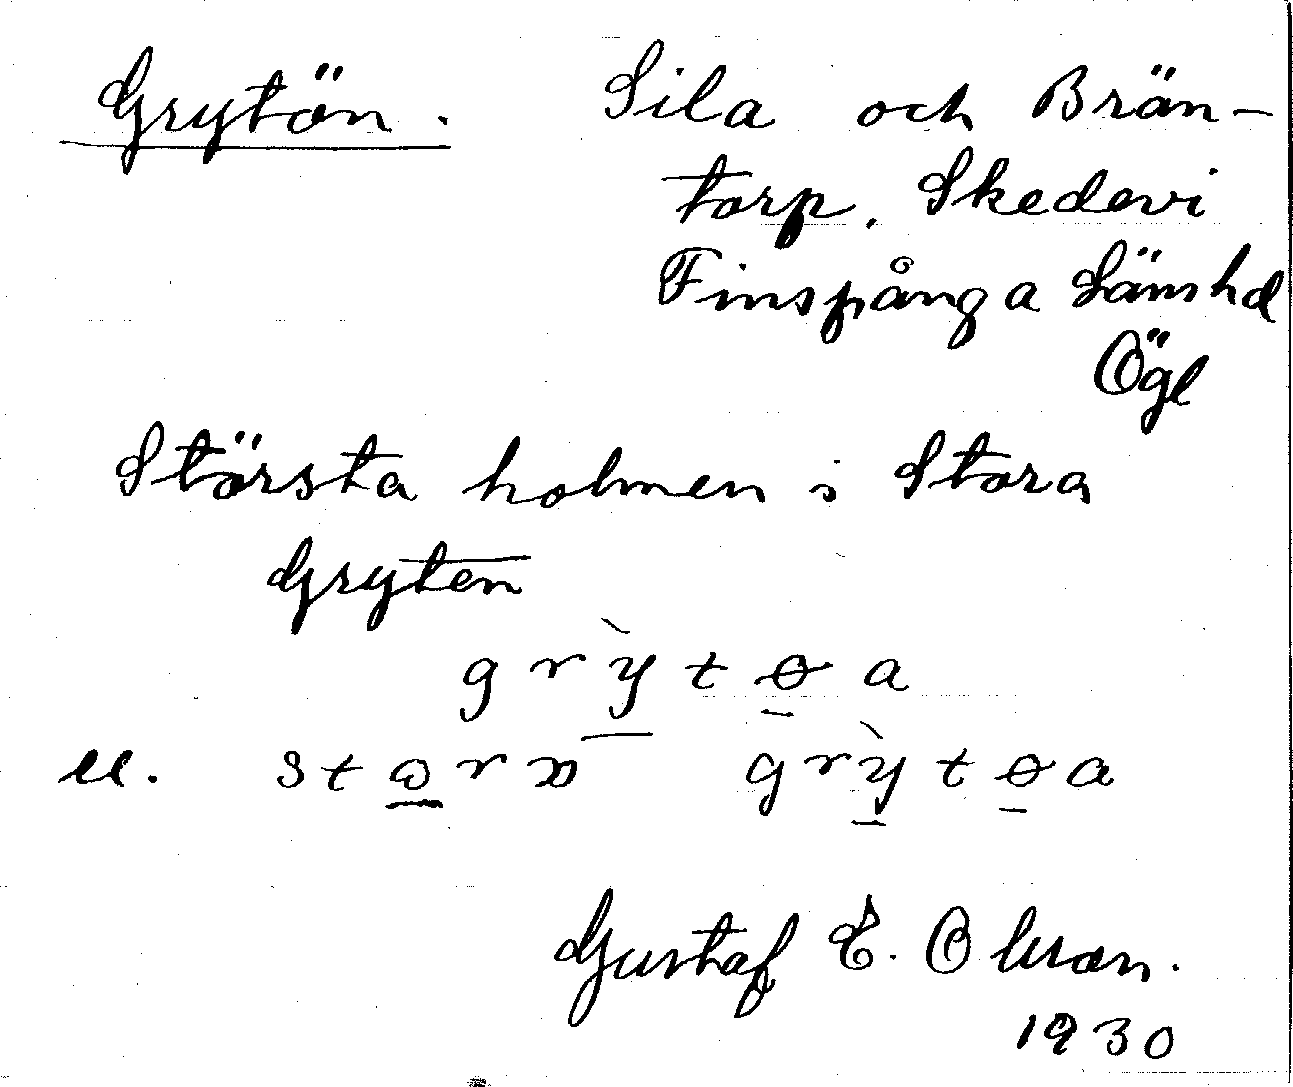 Grytön. Sila och Brän-
torp. Skedevi
Finspånga Länshd
Ögl
Största holmen i Stora
Gryten
grỳtɵa
el. grỳtɵa
Gustaf E. Olsson.
1930